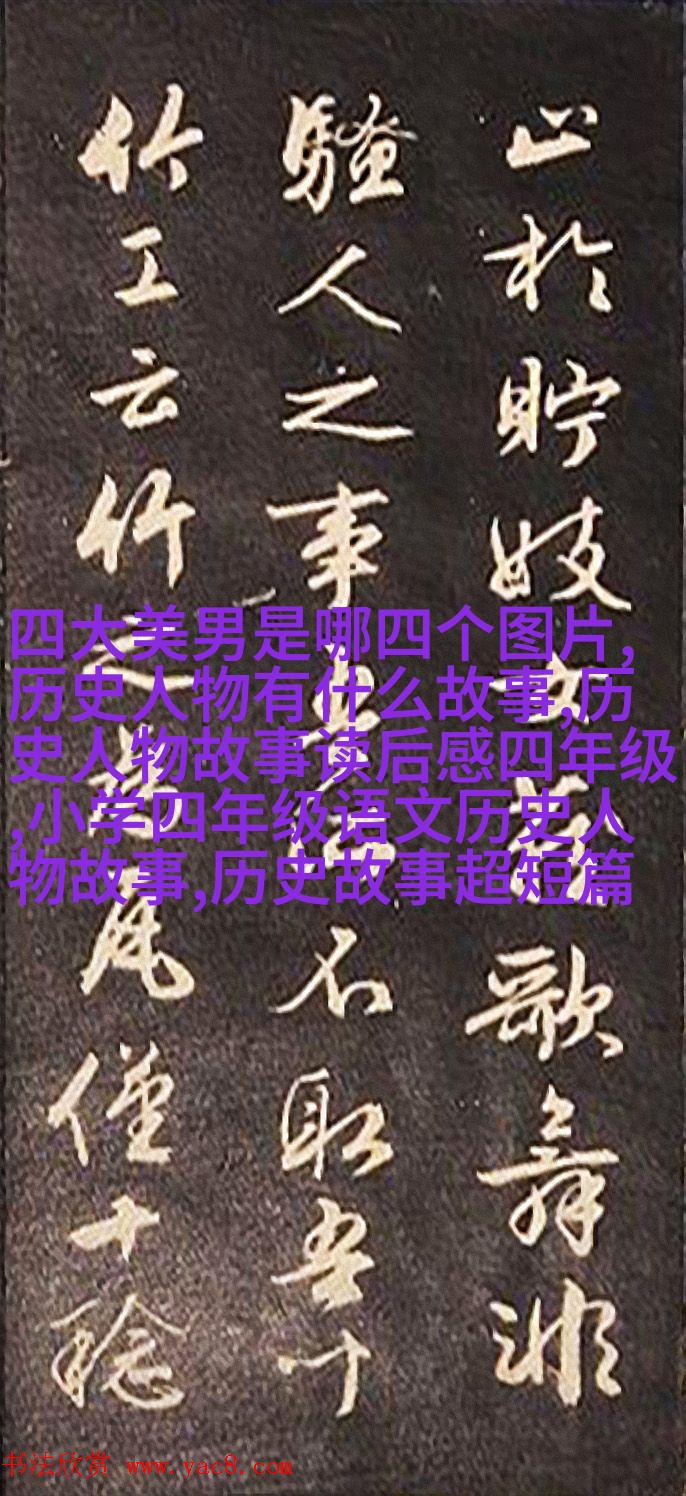 止於貯妓女藏歌舞非
騷人之事吾所不取吾十
竹工云竹之為瓦僅十稔
四大美男是哪四个图片,
历史人物有什么故事,历
史人物故事读后感四年级
,小学四年级语文历史人
物故事,历史故事超短篇
书法欣赏 www.yac8.com